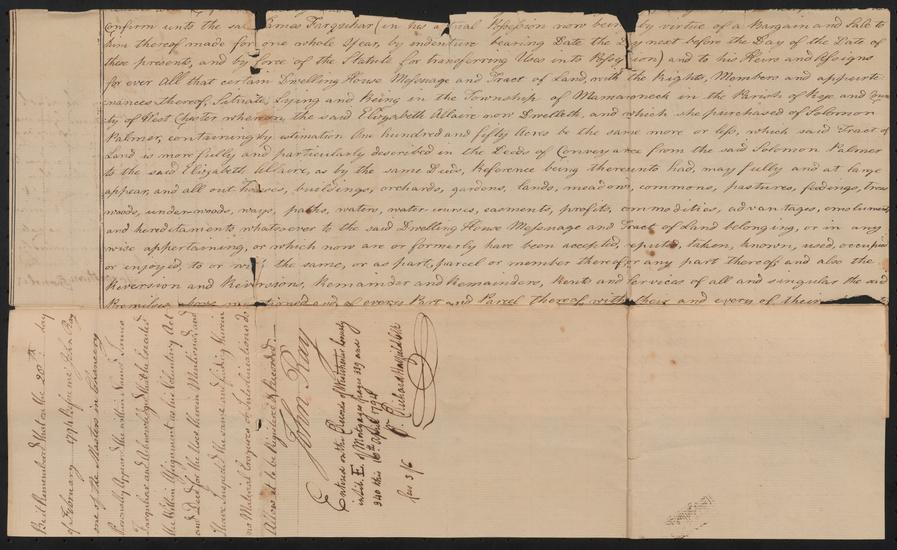 Confirm unto the said James Farquhar (in his actual Possession now being by virtue of a Bargain and Sale to
him thereof made for one whole Year, by indenture bearing Date the Day next before the Day of the Date of
these presents, and by force of the Statute for transferring Uses into Possession) and to his Heirs and Assigns
for ever All that certain Dwelling House Messuage and Tract of Land, with the Rights, Members and appurte-
nances thereof, Situate, Lying and Being in the Township of Mamaroneck in the Parish of Rye and Coun-
ty of West Chester whereon the said Elizabeth Allaire now Dwelleth, and which she purchased of Solomon
Palmer, containing by estimation One hundred and fifty Acres be the same more or less, which said Tract of
Land is more fully and particularly described in the Deeds of Conveyance from the said Solomon Palmer
to the said Elizabeth Allaire, as by the same Deeds, Reference being thereunto had, may fully and at large
appear, and all out houses, buildings, orchards, gardens, lands, meadow, commons, pastures, feedings, trees
woods, under-woods, ways, paths, waters, water-courses, easments, profits, commodities, advantages, emoluments
and hereditaments whatsoever to the said Dwelling House Messuage and Tract of Land belonging, or in any
wise appertaining, or which now are or formerly have been accepted, reputed, taken, known, used, occupied
or enjoyed, to or with the same, or as part, parcel or member thereof or any part thereof; and also the
Reversion and Reversions, Remainder and Remainders, Rents and Services of all and singular the said
Premises above mentioned and of every Part and Parcel thereof with their and every of their
Be it Remembered that on the 20th day
of February 1794 before me John Ray
one of the Masters in Chancery
Personally appeared the within named James
Farquhar and Acknowledged that he Executed
the within Assignment as his Voluntary Act
and Deed for the Uses therein Mentioned and
I have Inspected the same and finding therein
no Material Erazures or Interlineations do
Allow it to be Registered & Recorded.
John Ray
Entered in the Records of Westchester County
in Lib. E of Mortgages pages 339 and
340 this 16th April 1794
Pr. Richard Hatfield Clk
3/6